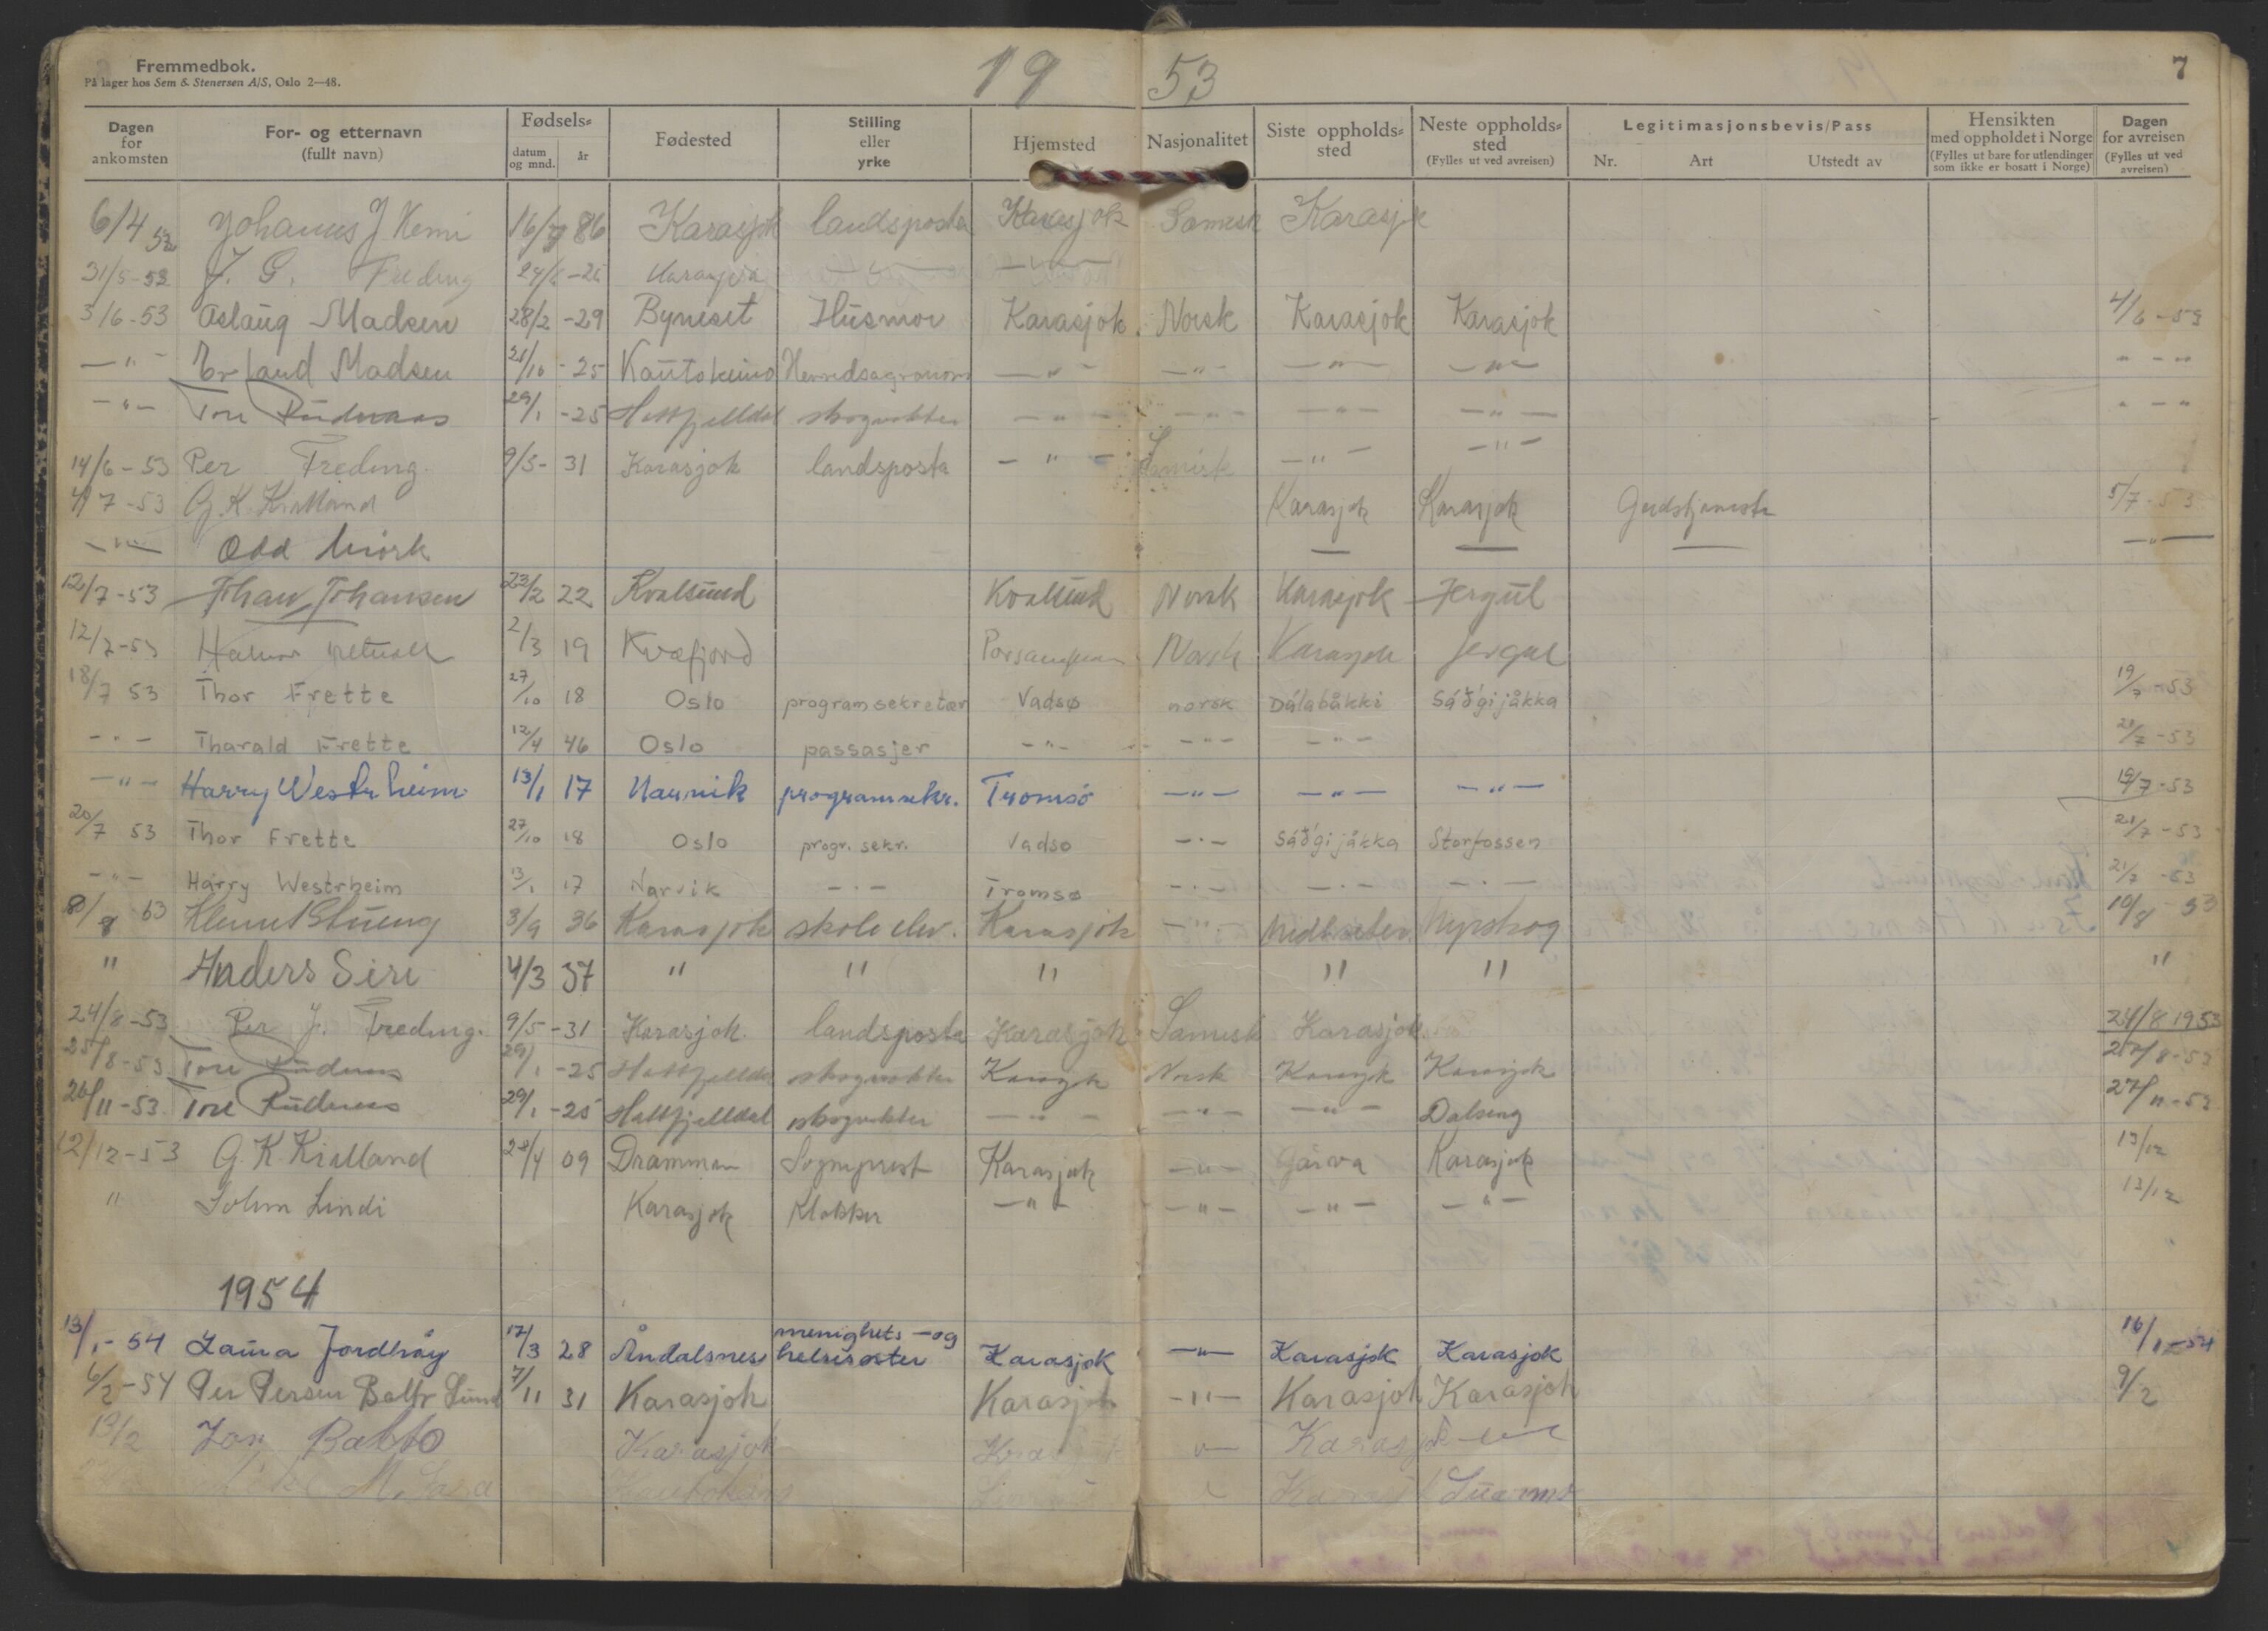 Fremmedbok.
På lager hos Sem & Stenersen A/S, Oslo 2—48.
19 53
7
Dagen for ankomsten | For- og etternavn (fullt navn) | Fødsels= datum og mnd. | år | Fødested | Stilling eller yrke | Hjemsted | Nasjonalitet | Siste oppholds= sted | Neste oppholds= sted (Fylles ut ved avreisen) | Legitimasjonsbevis/Pass Nr. | Art | Utstedt av | Hensikten med oppholdet i Norge (Fylles ut bare for utlendinger som ikke er bosatt i Norge) | Dagen for avreisen (Fylles ut ved avreisen)
6/4 53 Johannes J 86 Karasjok landsposta Karasjok Samisk Karasjok
31/5-53 J. G. Freding
3/6-53 Aslaug Madsen 28/2 -29 Byneset Husmor Karasjok Norsk Karasjok Karasjok 4/6-53
—"— Erland Madsen 21/10 -25 Kautokeino Herredsagronom —"— —"— —"— —"— " — "
—"— Tore 29/1 -25 Hattfjelldal skogvokter —"— —"— —"— —"— " — "
14/6-53 Per Freding 9/5- 31 Karasjok landsposta —"— Samisk —"— —"—
4/7-53 G. K. Kialland Karasjok Karasjok Gudstjeneste 5/7-53
—"— Odd — — — —"—
12/7-53 Johan Johansen 23/2 22 Kvalsund Kvalsund Norsk Karasjok Jergul
12/7-53 2/3 19 Kvæfjord Norsk Karasjok Jergul
18/7 53 Thor Frette 27/10 18 Oslo programsekretær Vadsø norsk Dálabåkki Sáđgijåkka 19/7-53
—"— Tharald Frette 12/4 46 Oslo passasjer —"— —"— —"— 20/7-53
—"— Harry Westrheim 13/1 17 Narvik programsekr. Tromsö —"— —"— —"— 19/7-53
20/7 53 Thor Frette 27/10 18 Oslo progr. sekr. Vadsø —"— Sáđgijåkka Storfossen 21/7-53
—"— Harry Westrheim 13/1 17 Narvik —"— Tromsø —"— —"— —"— 21/7-53
8/8 53 Klemet 3/9 36 Karasjok skole elev. Karasjok —"— Nyrskog 10/8 53
" Anders Siri 4/3 37 " " " " " "
24/8-53 Per J. Freding 9/5-31 Karasjok landsposta Karasjok Samisk Karasjok 24/8 1953
25/8-53 Tore 29/1 -25 Hattfjelldal skogvokter Karasjok Norsk Karasjok Karasjok 27/8-53
26/11-53 Tore 29/1 -25 Hattfjelldal skogvokter —"— —"— —"— Dalseng 27/11-53
12/12-53 G. K. Kialland 28/4 09 Drammen Sogneprest Karasjok —"— Karasjok 13/12
" Lindi Karasjok Klokker —"— —"— —"— —"— 13/12
1954
13/1-54 Jordhøy 17/3 28 Åndalsnes menighets-og helsesøster Karasjok —"— Karasjok Karasjok 16/1-54
6/2-54 Per Persen Balto 7/11 31 Karasjok Karasjok —"— Karasjok Karasjok 9/2
Balto Karasjok Karasjok
M. Sara